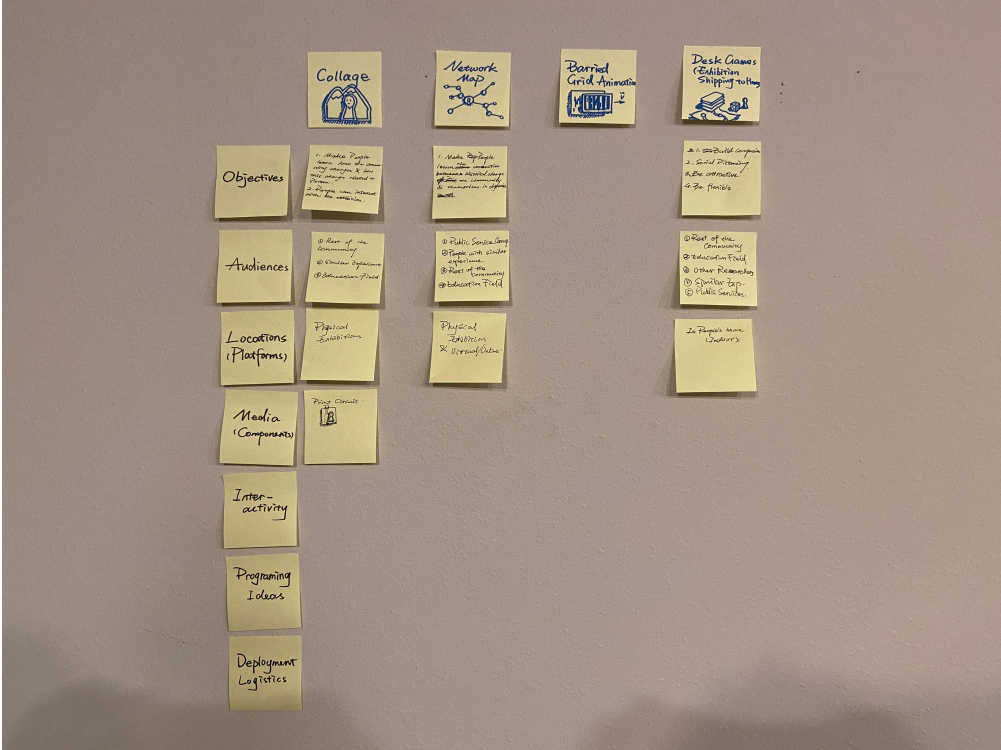 Collage
Network
Map
Barried
Grid Animation
Desk Games
(Exhibition
Shipping to
Objectives
1. Make People
learn how the
changes & how
this change
2. People can interact
with the exhibition
1. Make People
community
2. Social Distancing
3. Be attractive
4. Be flexible
Audiences
① Rest of the
Community
② Similar Experience
③ Education Field
① Public Service
② People with similar
experience
③ Rest of the
Community
④ Education Field
① Rest of the
Community
② Education Field
③ Other Researchers
④ Similar Exp.
⑤ Public Services.
Locations
(Platforms)
Physical
Exhibitions
Physical
Exhibition
& Virtual/Online
In People's home
(Indoors
Media
(Components)
Print Circuit
Inter-
activity
Programing
Ideas
Deployment
Logistics